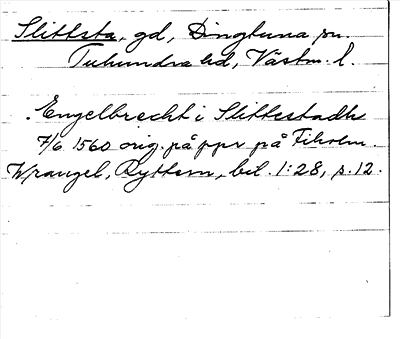 Slittsta, gd, Dingtuna sn.
Tuhundra hd, Västm. l.
Engelbrecht i Slittestadh
7/6 1560 orig. på ppr på Fiholm.
Wrangel, Ryttern, bil. 1:28, s. 12.